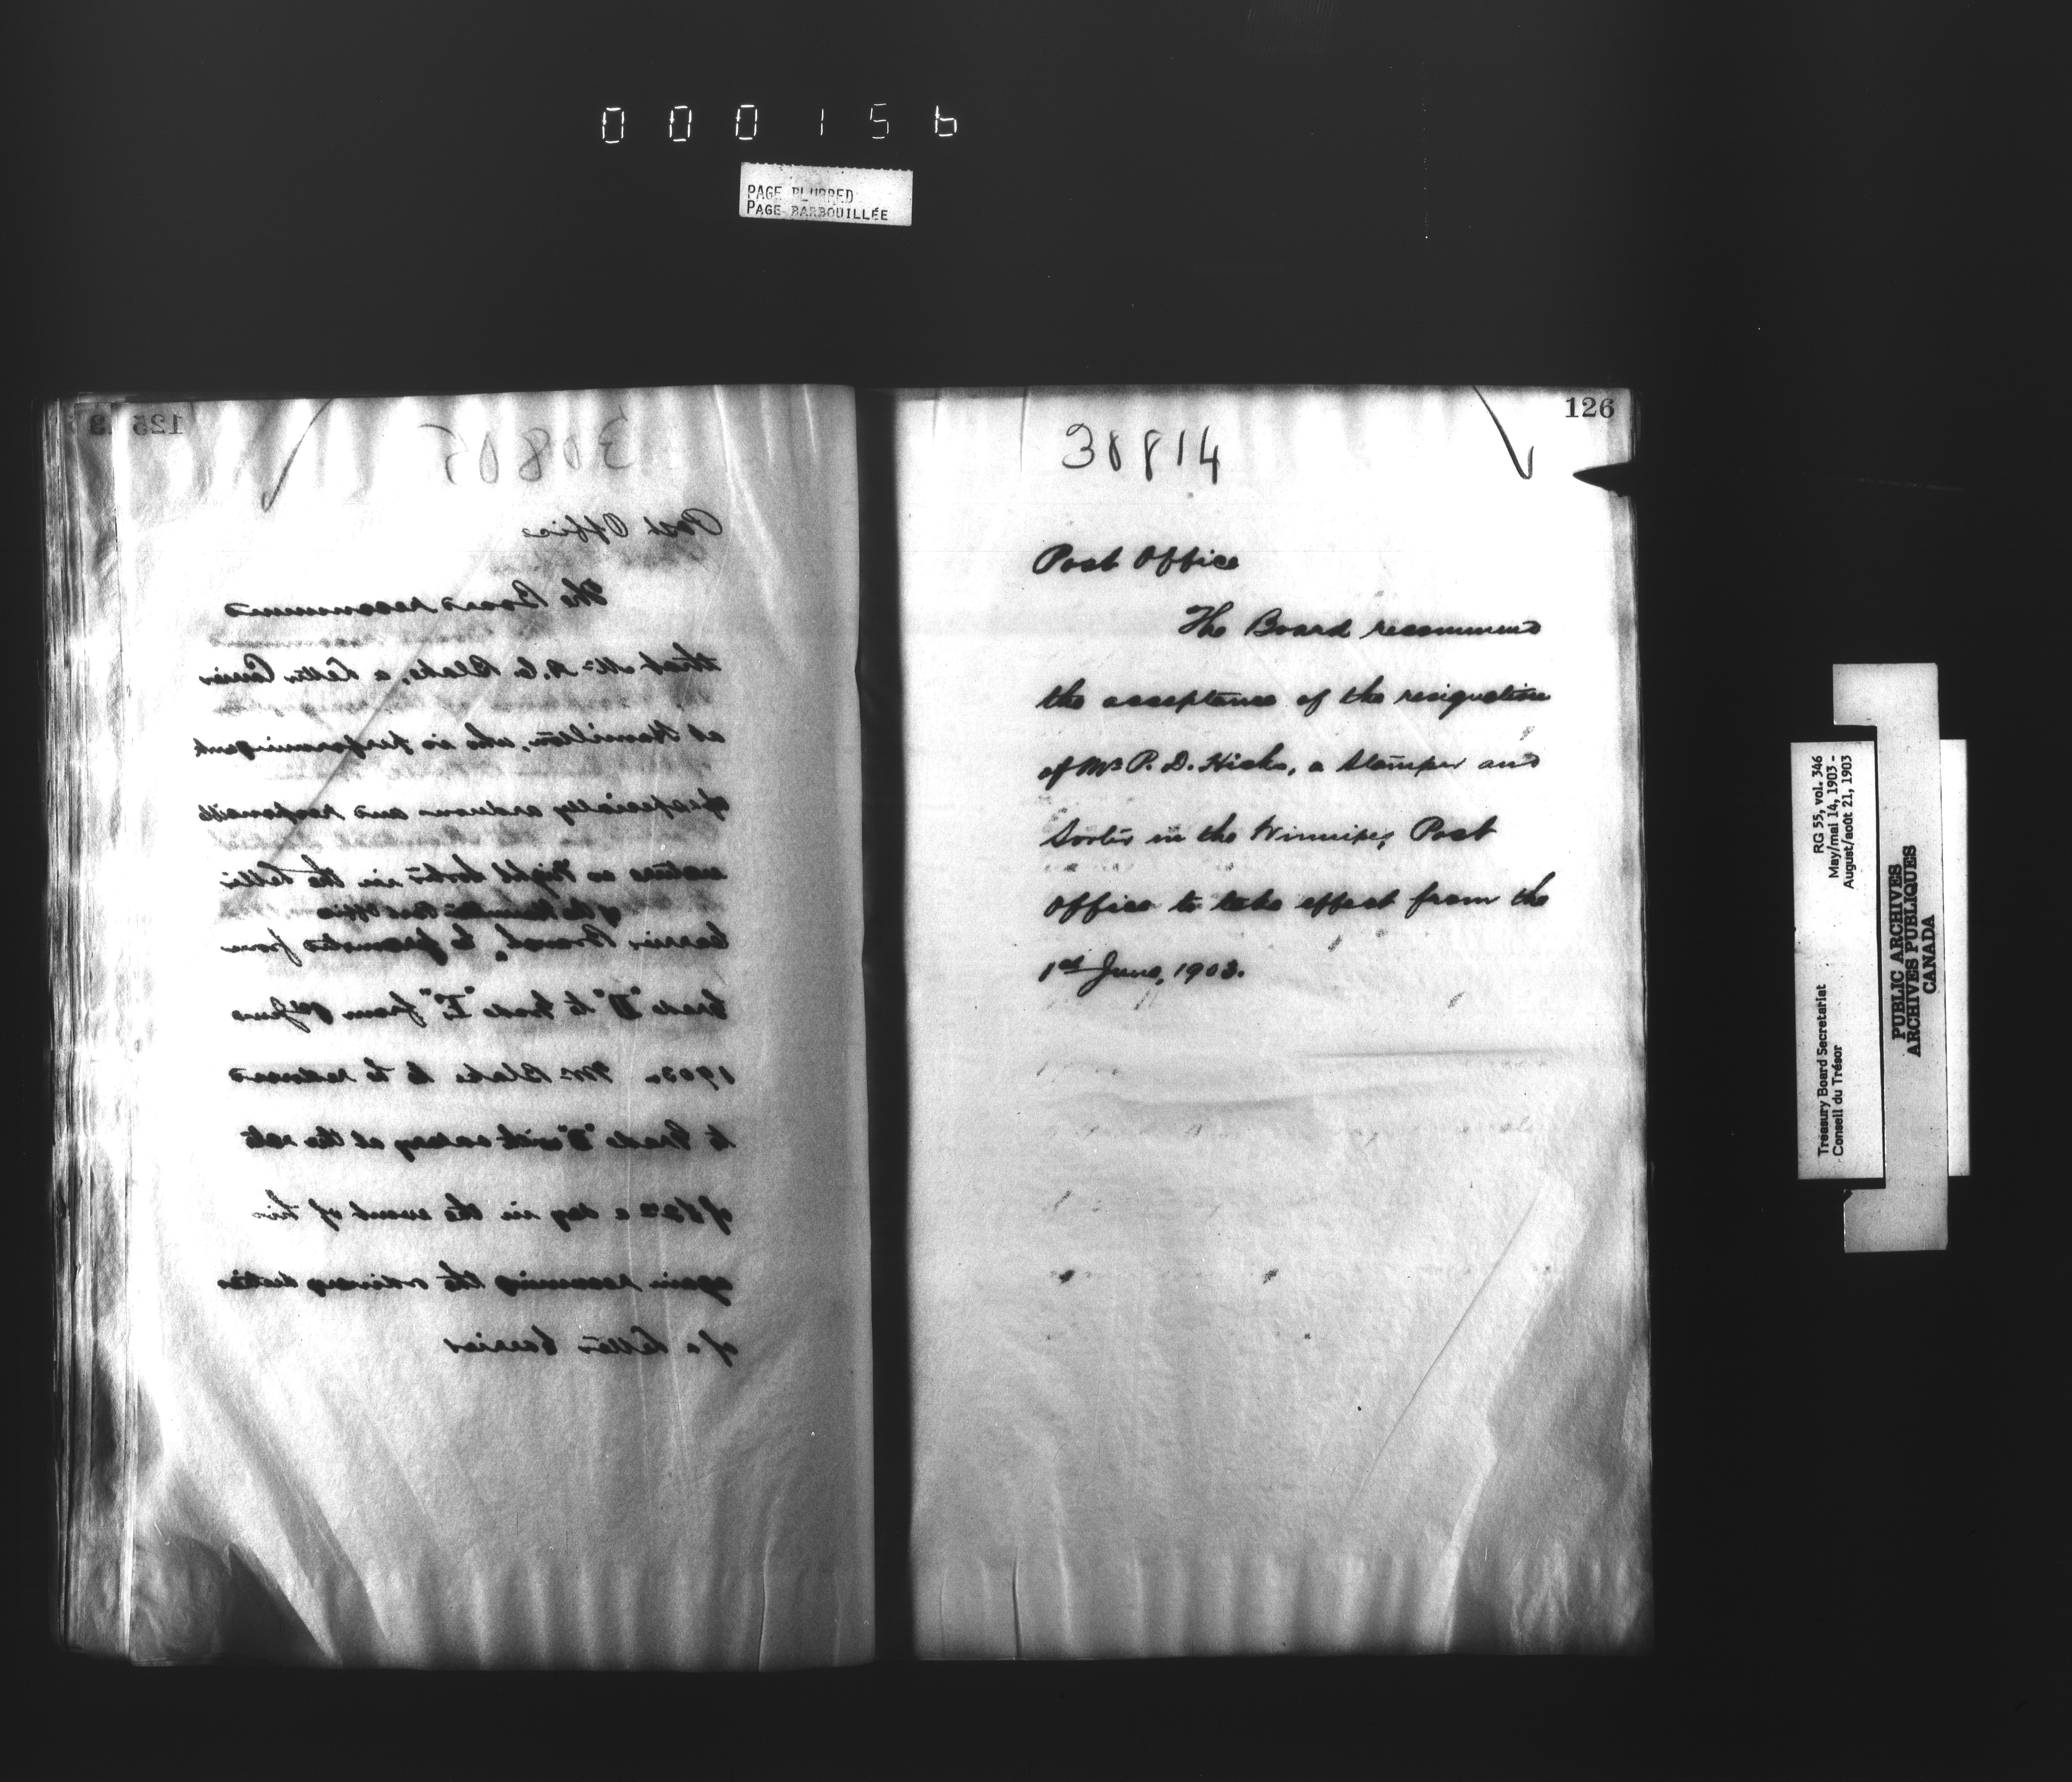 000156
PAGE BLURRED
PAGE BARBOUILLÉE
125
30805
Post Office
The Board recommend
that Mr. A. C. Blake, a Letter Carrier
at Hamilton, who is performing work
of especially arduous and responsible
nature as Night Sorter in the Letter
of the Hamilton Post Office
Carrier Branch, be promoted from
Grade "D" to Grade "E" from 1st June
1903. Mr Blake to be reduced
to Grade "D" with salary at the rate
a day in the event of his
again resuming the ordinary duties
of a Letter Carrier
126
30814
Post Office
The Board recommend
the acceptance of the resignation
of Mr P. D. Hicks, a Stamper and
Sorter in the Winnipeg Post
Office to take effect from the
1st June, 1903.
RG 55, vol. 346
May/mai 14, 1903 -
August/août 21, 1903
Treasury Board Secretariat
Conseil du Trésor
PUBLIC ARCHIVES
ARCHIVES PUBLIQUES
CANADA